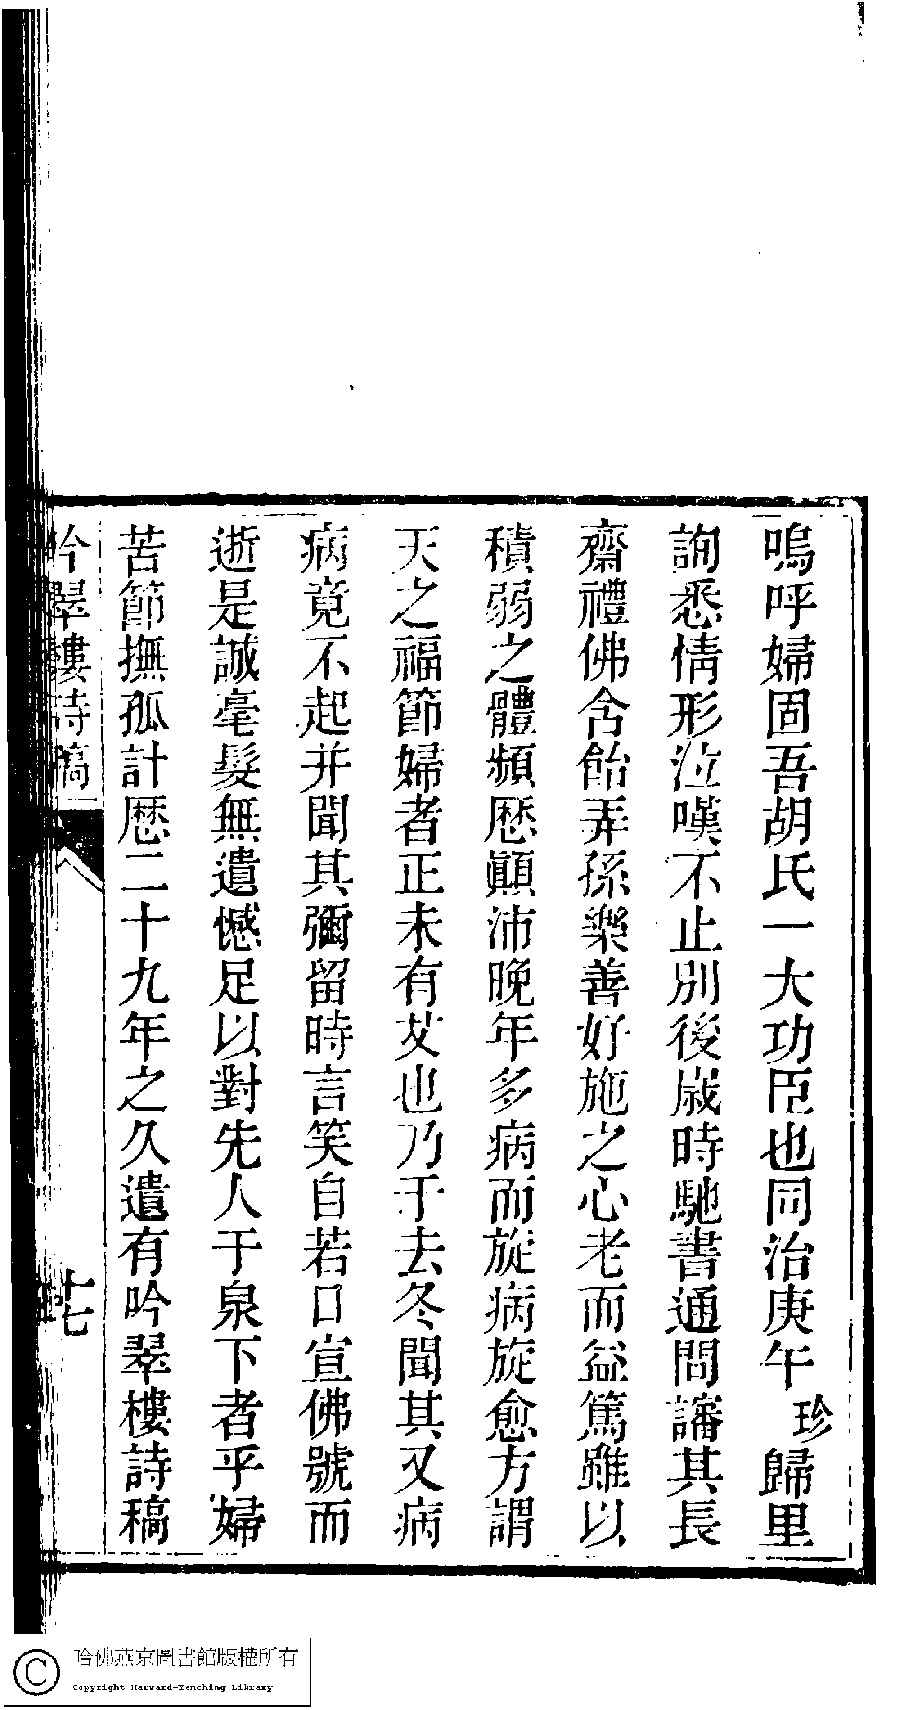 嗚呼婦固吾胡氏一大功臣也同治庚午珍歸里
詢悉情形泣嘆不止別後歲時馳書通問諳其長
齋禮佛含飴弄孫樂善好施之心老而益篤雖以
積弱之體頻歷顛沛晚年多病而旋病旋愈方謂
天之福節婦者正未有艾也乃于去冬聞其又病
病竟不起并聞其彌留時言笑自若口宣佛號而
逝是誠毫髮無遺憾足以對先人于泉下者乎婦
苦節撫孤計歷二十九年之久遺有吟翠樓詩稿
吟翠樓詩稿
廿七
哈佛燕京圖書館版權所有
Copyright Harvard-Yenching Library